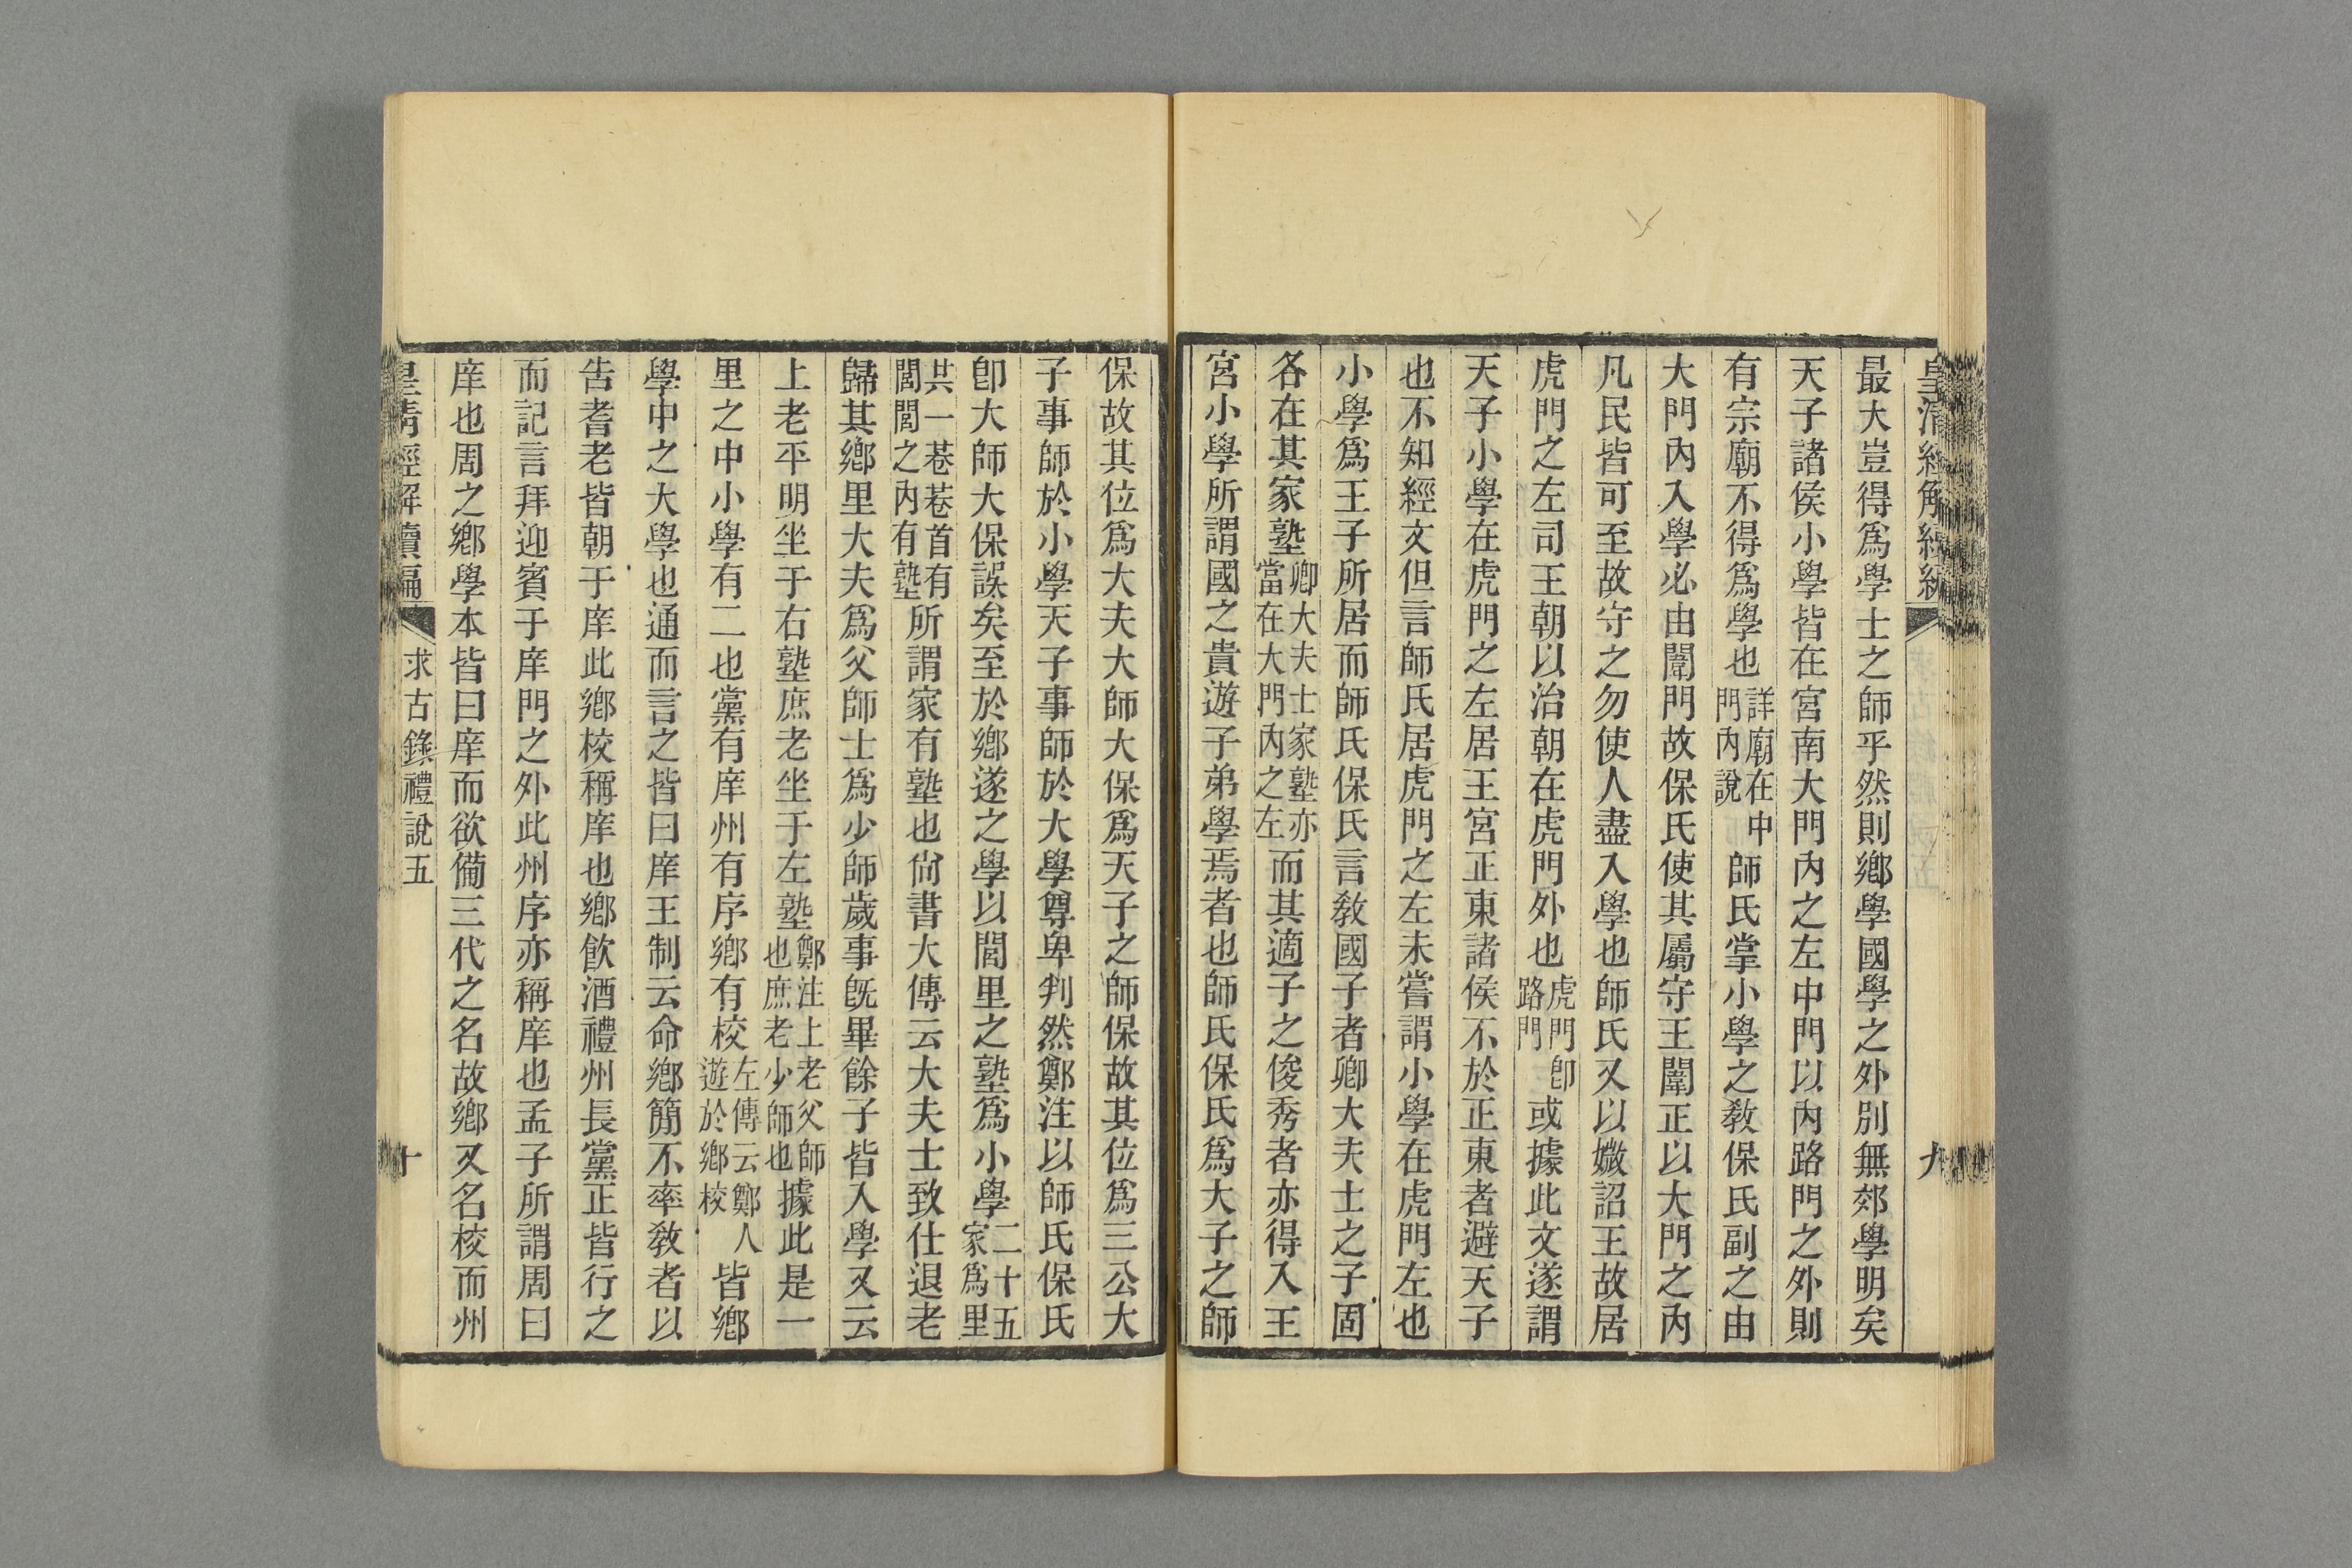 皇清經解續編
九
最大豈得爲學士之師乎然則鄉學國學之外別無郊學明矣
天子諸侯小學皆在宮南大門內之左中門以內路門之外則
有宗廟不得爲學也詳廟在中門內說師氏掌小學之敎保氏副之由
大門內入學必由闈門故保氏使其屬守王闈正以大門之內
凡民皆可至故守之勿使人盡入學也師氏又以媺詔王故居
虎門之左司王朝以治朝在虎門外也虎門卽路門或據此文遂謂
天子小學在虎門之左居王宮正東諸侯不於正東者避天子
也不知經文但言師氏居虎門之左未嘗謂小學在虎門左也
小學爲王子所居而師氏保氏言敎國子者卿大夫士之子固
各在其家塾卿大夫士家塾亦當在大門內之左而其適子之俊秀者亦得入王
宮小學所謂國之貴遊子弟學焉者也師氏保氏爲大子之師
保故其位爲大夫大師大保爲天子之師保故其位爲三公大
子事師於小學天子事師於大學尊卑判然鄭注以師氏保氏
卽大師大保誤矣至於鄉遂之學以閭里之塾爲小學二十五家爲里
共一巷巷首有閭閭之內有塾所謂家有塾也尙書大傳云大夫士致仕退老
歸其鄉里大夫爲父師士爲少師歲事旣畢餘子皆入學又云
上老平明坐于右塾庶老坐于左塾鄭注上老父師也庶老少師也據此是一
里之中小學有二也黨有庠州有序鄉有校左傳云鄭人遊於鄉校皆鄉
學中之大學也通而言之皆曰庠王制云命鄉簡不率敎者以
告耆老皆朝于庠此鄉校稱庠也鄉飮酒禮州長黨正皆行之
而記言拜迎賓于庠門之外此州序亦稱庠也孟子所謂周曰
庠也周之鄉學本皆曰庠而欲備三代之名故鄉又名校而州
皇清經解續編
求古錄禮說五
十